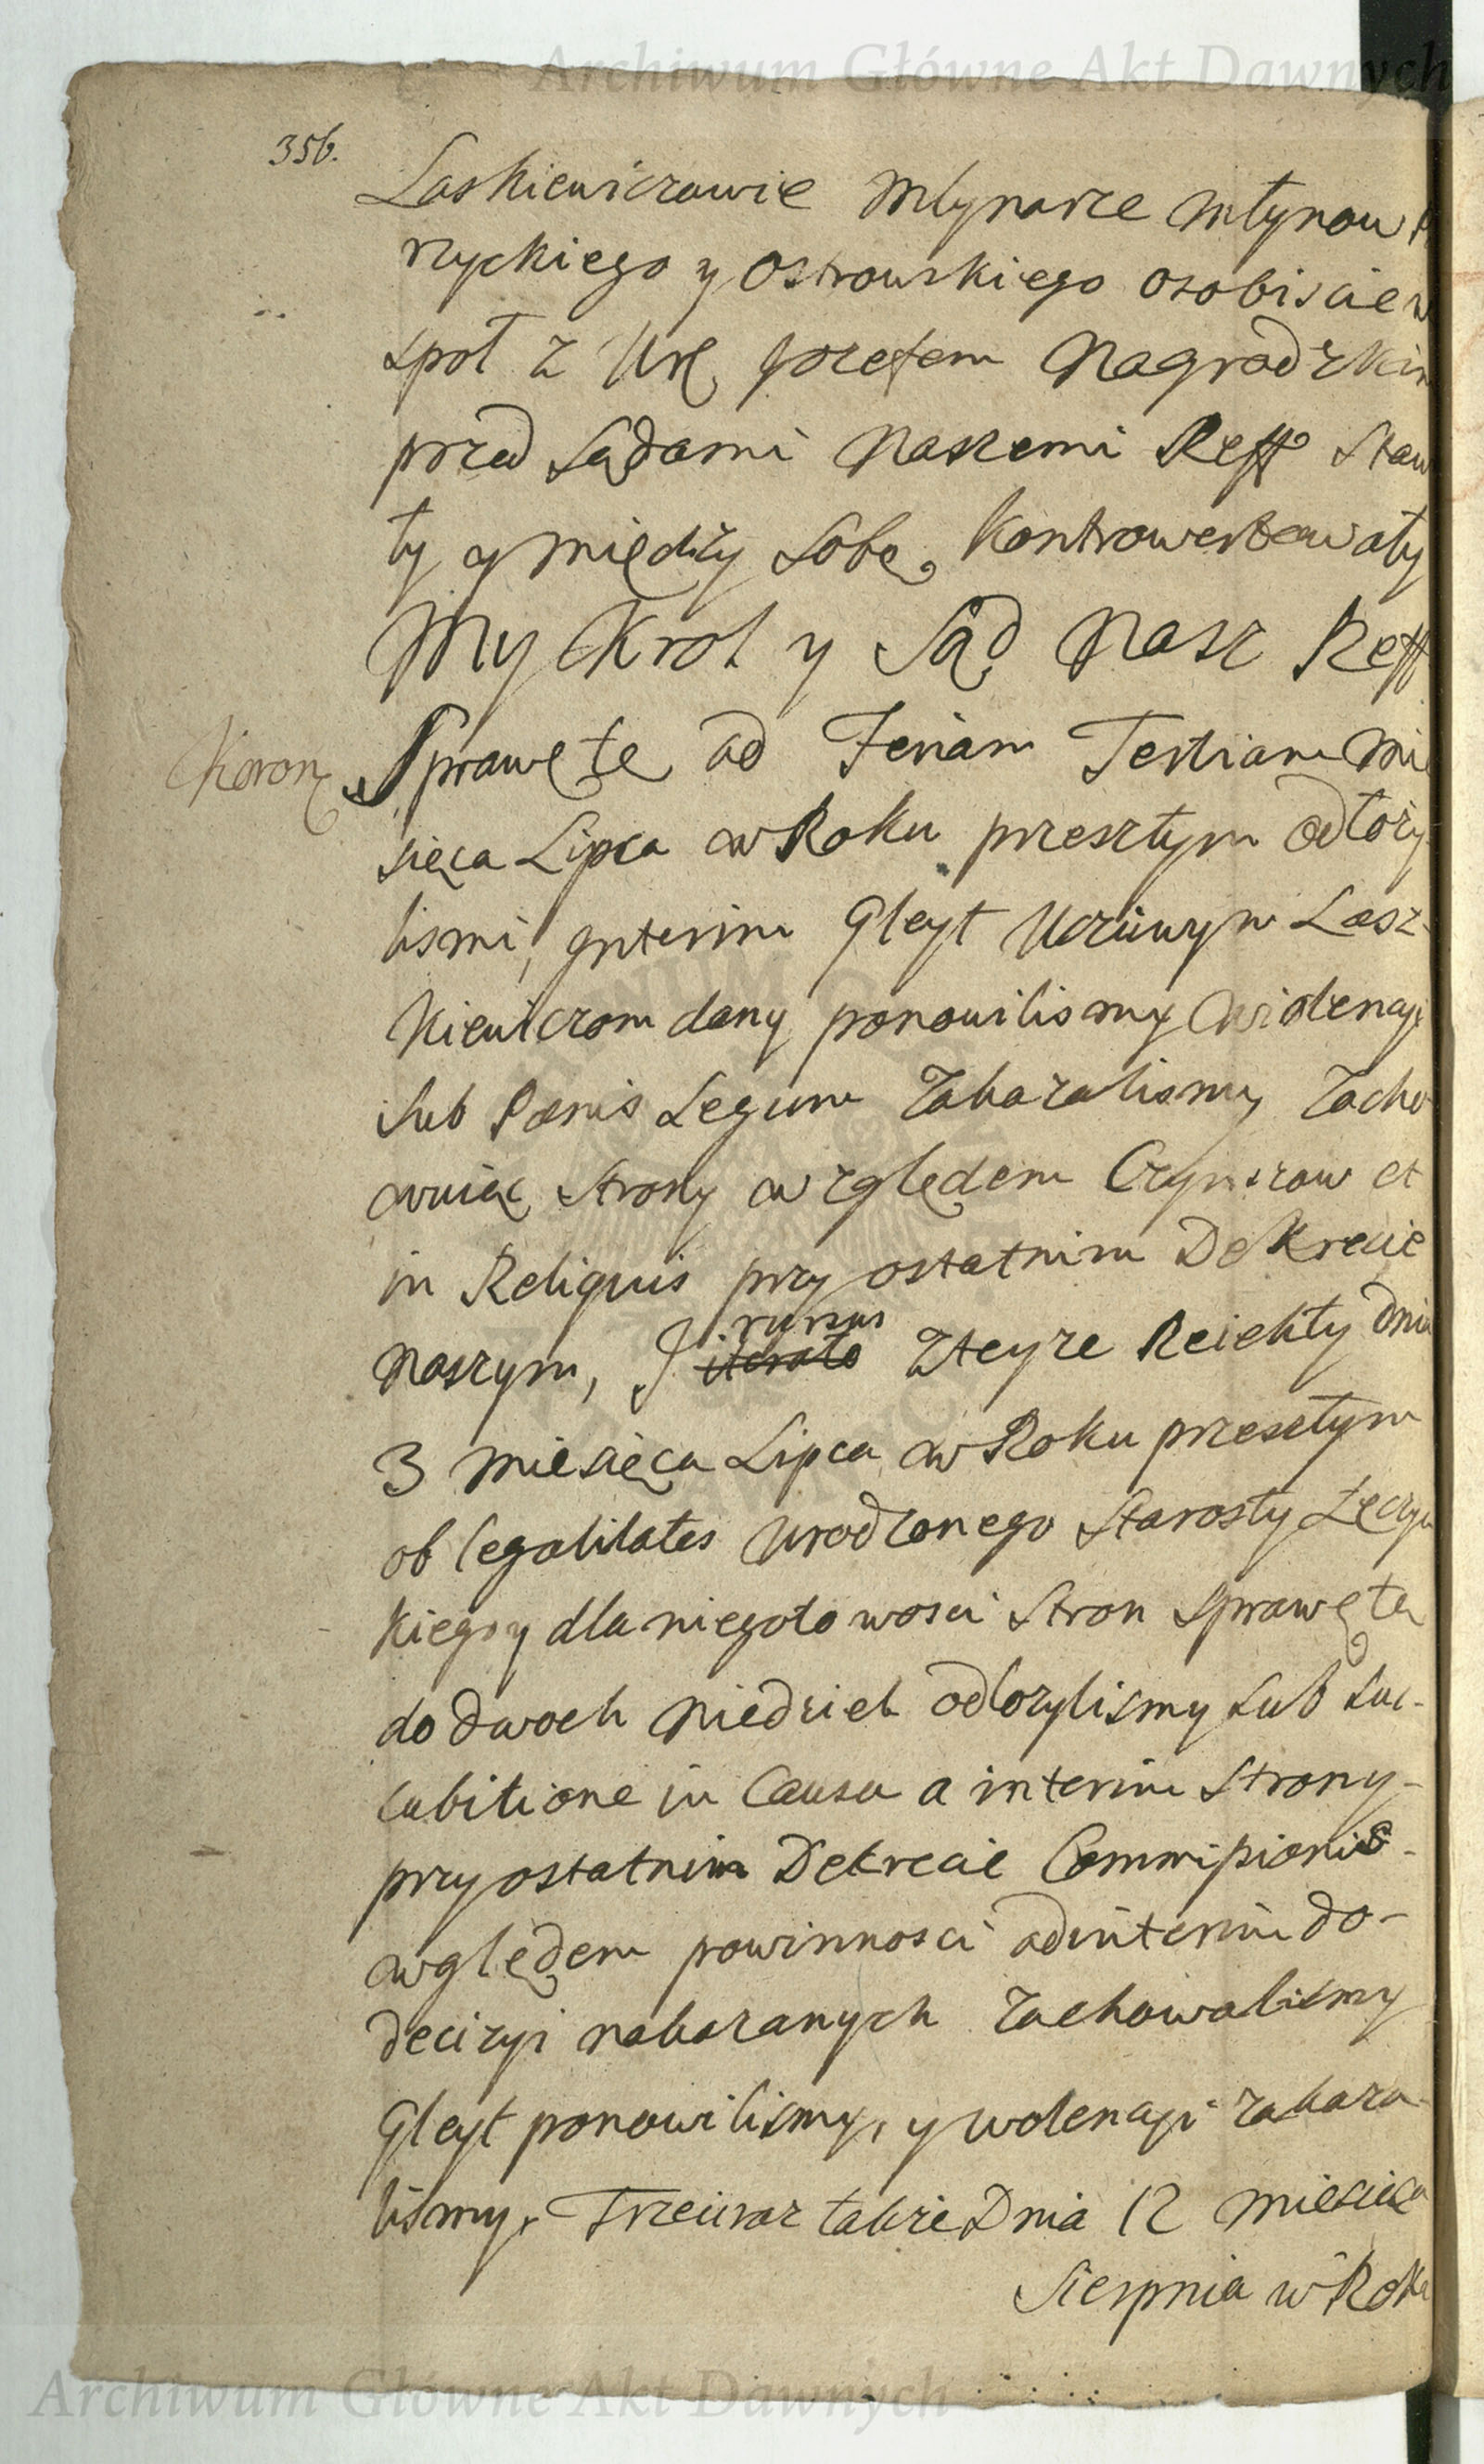 Archiwum Główne Akt Dawnych
356.
Laskiewiczowie Młynarze Młynow
rzyckiego y Ostrowskiego osobiscie w
społ z Ur Jozefem Nagrodzkim
przed Sądami Naszemi Reff Staw
ły y między Sobą Kontrowertowały
My Krol y Sąd Nasz Reff
Koron Sprawę tę ad Feriam Tertiam Mie
sięca Lipca w Roku przeszłym odłoży
lismi, Interim Gleyt Uczciwym Lasz-
kiewiczom dany ponowilismy Wiolencyi
sub Pænis Legum Zakazalismy Zacho
wuiąc Strony względem Czynszow et
in Reliquis przy ostatnim Dekrecie
Naszym, I iterato rursus Zteyze Reiekty dnia
3 Miesięca Lipca w Roku przeszłym
ob legalitates Urodzonego Starosty Łęczyc
kiego y dla niegotowosci Stron Sprawę tę
do dwoch Niedziel odłozylismy sub suc-
cubitione in Causa a interim Strony-
przy ostatnim Dekrecie Commissionis-
względem powinnosci ad interim do-
decizyi nakazanych Zachowalismy
Gleyt ponowilismy, y wolencyi zakaza-
lismy. Trzeciraz takze Dnia 12 Miesiąca
Sierpnia w Roku
Archiwum Główne Akt Dawnych